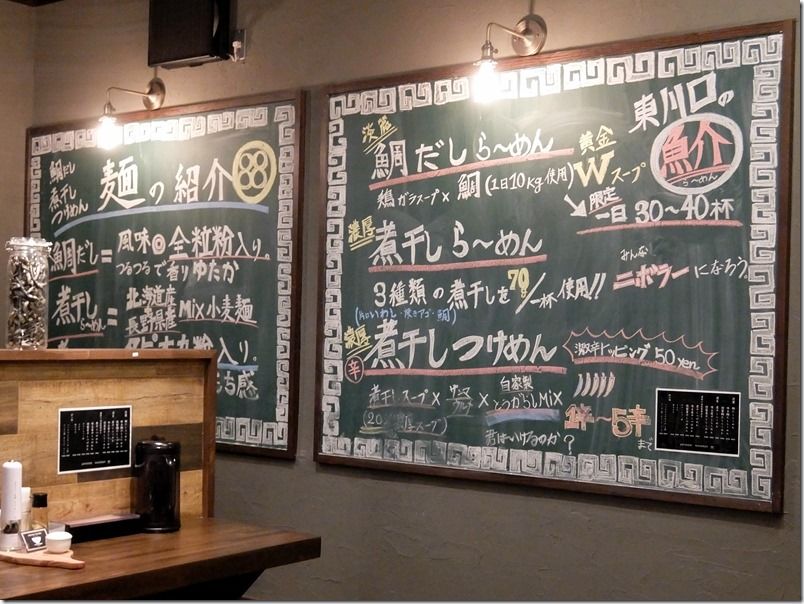 鯛だし
煮干し
つけめん
麺の紹介
鯛だし=風味◎全粒粉入り。
つるつるで香りゆたか
煮干し
ら〜めん
=北海道産
長野県産
Mix小麦麺
粉入り。
ち感
東川口の
魚介
ら〜めん
淡麗
鯛だしら〜めん
鶏ガラスープ×鯛(1日10kg使用)
黄金
Wスープ
限定
一日30〜40杯
濃厚
煮干しら〜めん
3種類の煮干しを70g/一杯使用!!
(片口いわし・焼きアゴ・鯛)
みんな
ニボラーになろう
濃厚
辛
煮干しつけめん
激辛トッピング50yen
煮干しスープ×サンマ
×自家製
とうがらしMix
君はいけるのか?
1辛〜5辛
まで